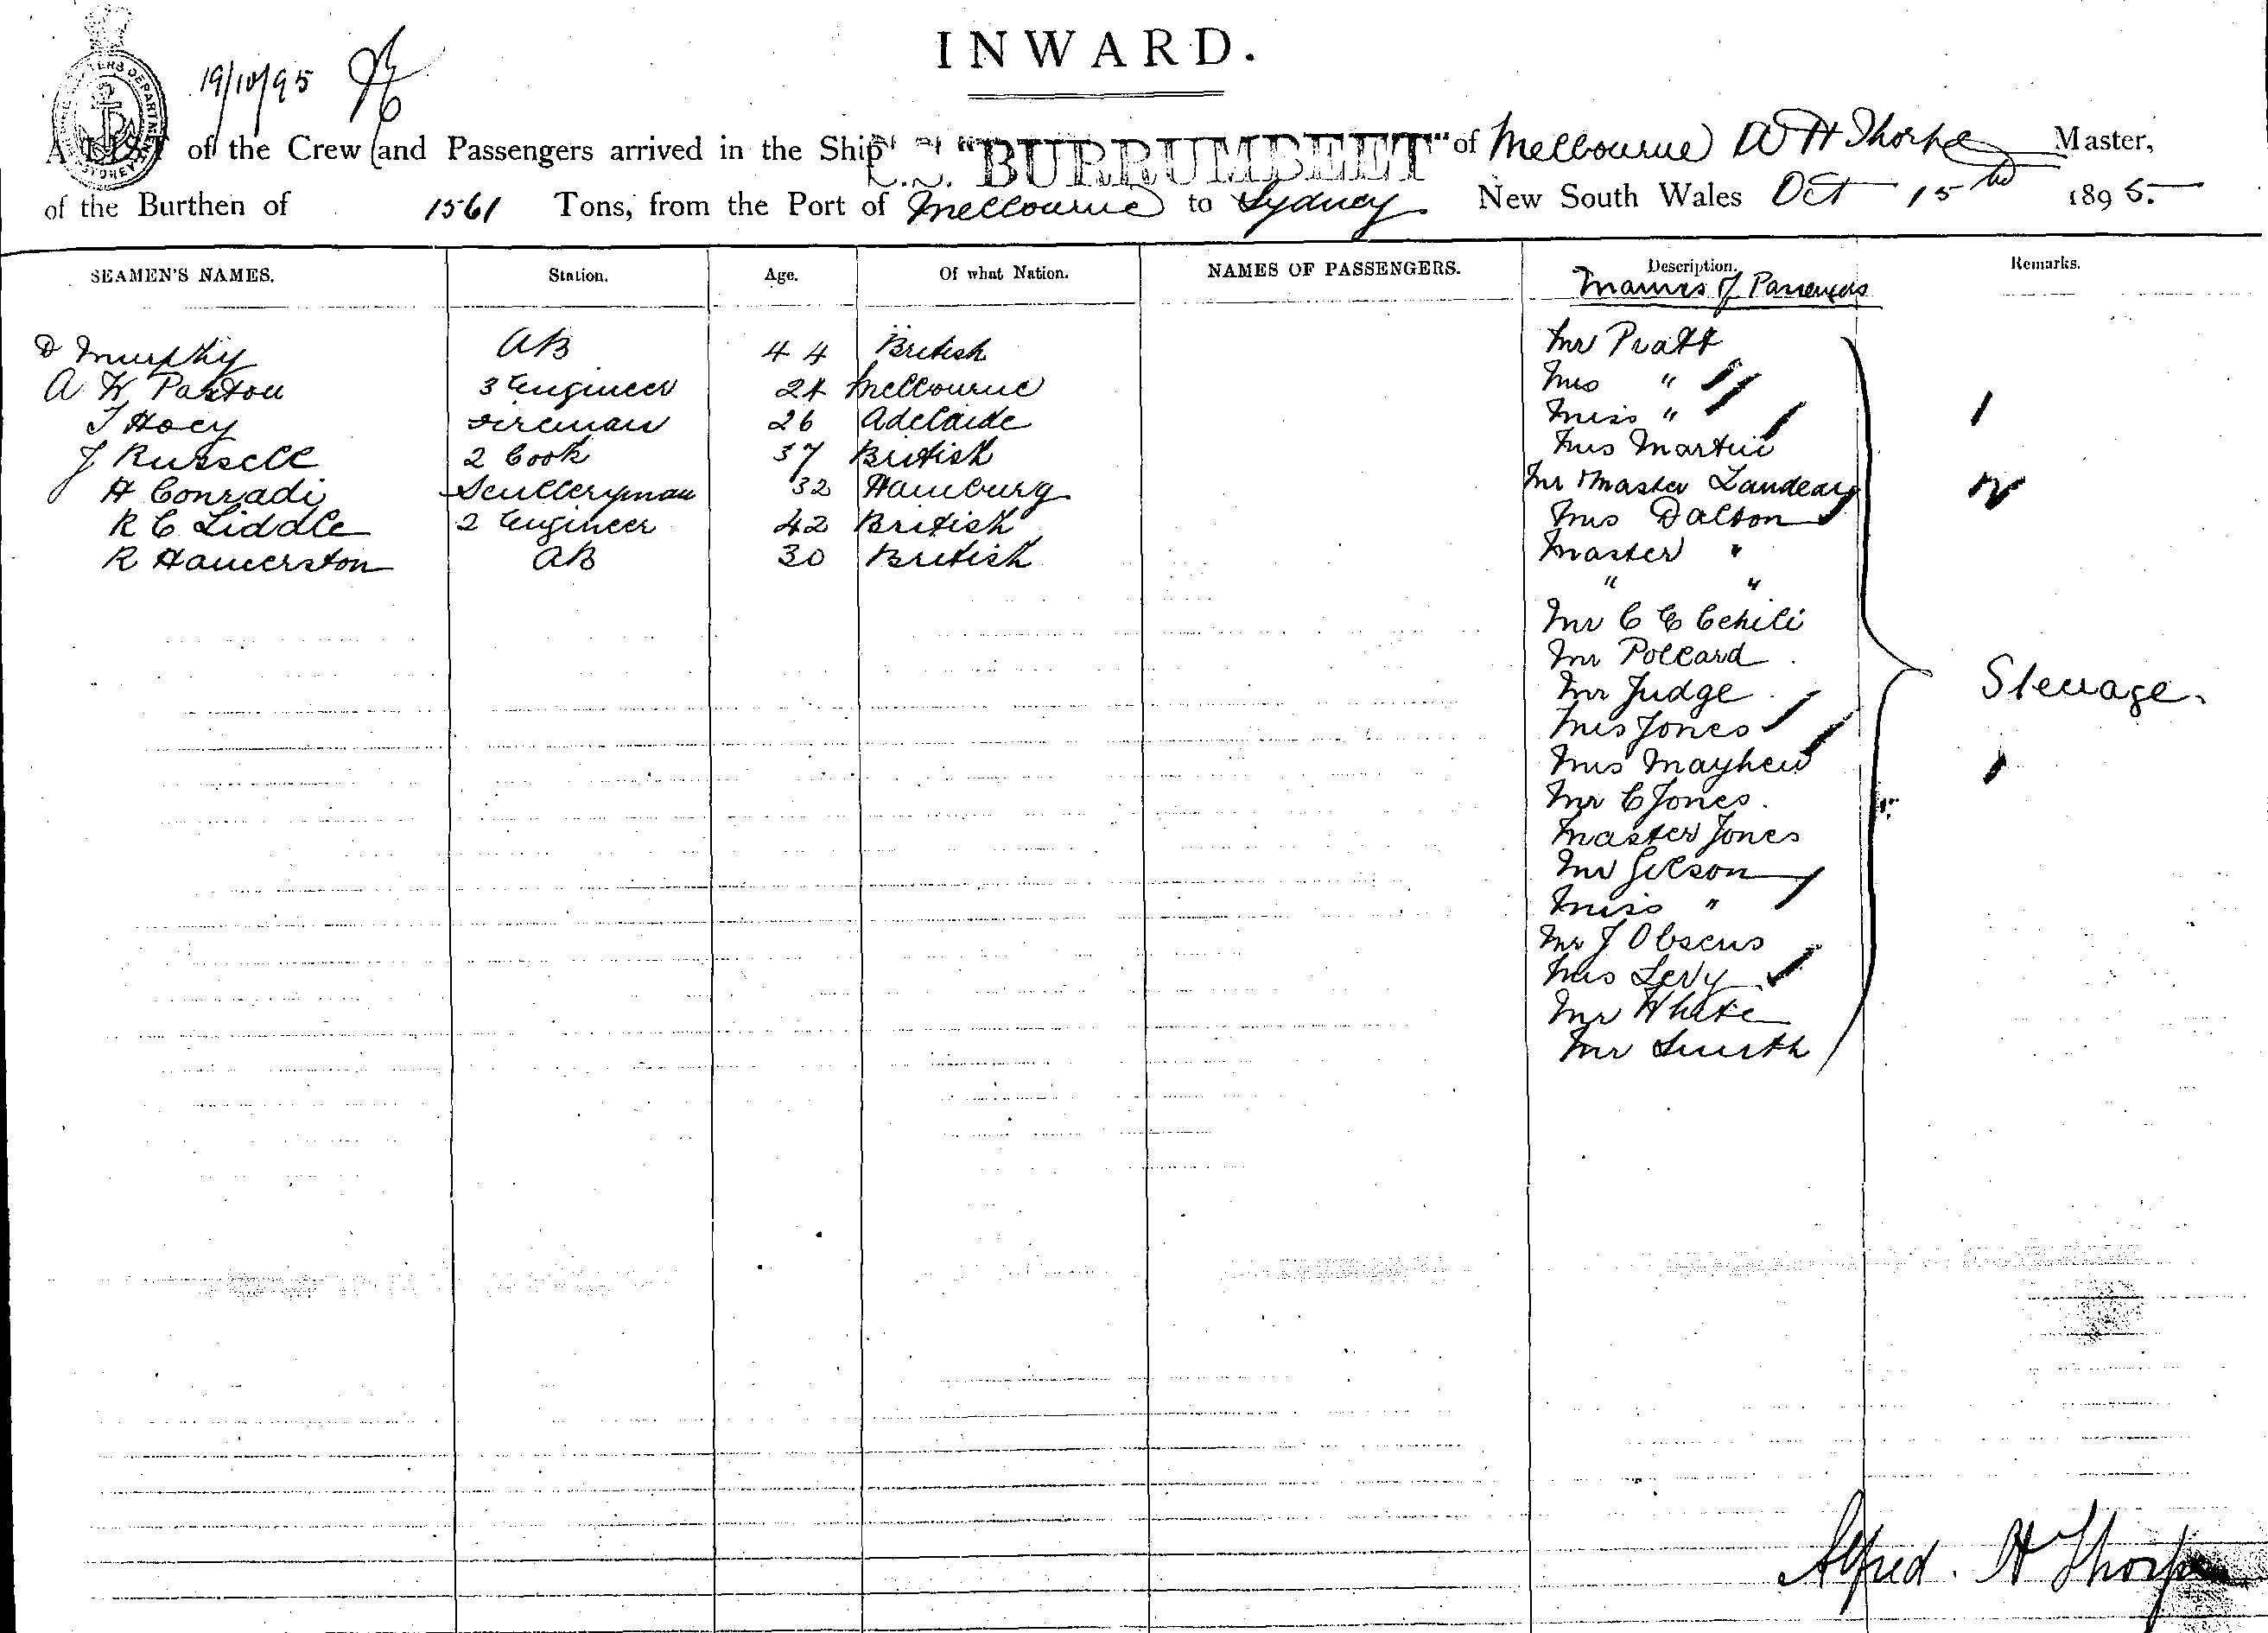 INWARD.
19/10/95
A LIST of the Crew and Passengers arrived in the Ship S.S. "BURRUMBEET" of Melbourne W H Thorpe Master,
of the Burthen of 1561 Tons, from the Port of Melbourne to Sydney New South Wales Oct 15th 1895.
SEAMEN'S NAMES. Station. Age. Of what Nation. NAMES OF PASSENGERS. Description. Remarks.
Names of Passengers
D Murphy AB 44 British Mr Pratt
A W Paxton 3 Engineer 24 Melbourne Mrs "
T Hoey Fireman 26 Adelaide Miss "
J Russell 2 Cook 37 British Mrs Martin
H Conradi Sculleryman 32 Hamburg Mr Master
R C Liddle 2 Engineer 42 British Mrs Dalton
R Hamerston AB 30 British Master "
" "
Mr C C
Mr Pollard
Mr Judge
Steerage.
Mrs Jones
Mrs Mayhew
Mr C Jones.
Master Jones
Mr Gilson
Miss "
Mr J
Mrs Levy
Mr White
Mr Smith
Alfred. H Thorpe